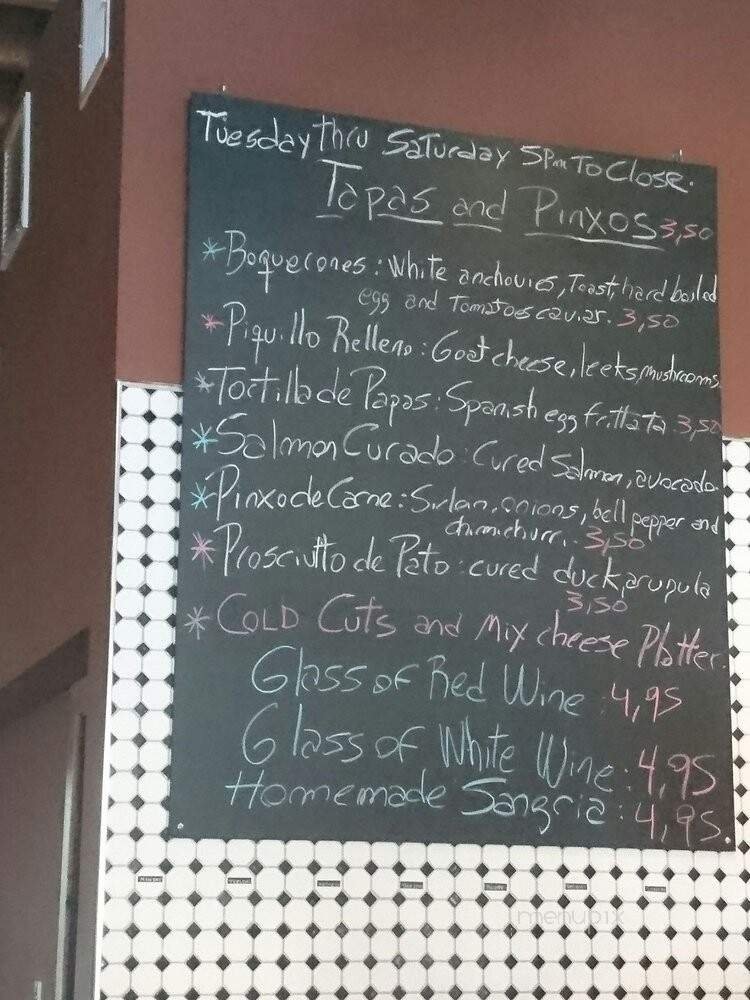 Tuesday thru Saturday 5Pm To Close.
Tapas and Pinxos 3,50
*Boquerones: White anchovies, Toast, hard boiled
egg and Tomatoes caviar. 3,50
*Piquillo Relleno: Goat cheese, leeks, mushrooms
*Tortilla de Papas: Spanish egg frittata 3,50
*Salmon Curado: Cured Salmon, avocado
*Pinxo de Carne: Sirloin, onions, bell pepper and
chimichurri. 3,50
*Prosciutto de Pato: cured duck, arugula
3,50
*COLD Cuts and Mix cheese Platter.
Glass of Red Wine: 4,95
Glass of White Wine: 4,95
Homemade Sangria: 4,95.
menupix